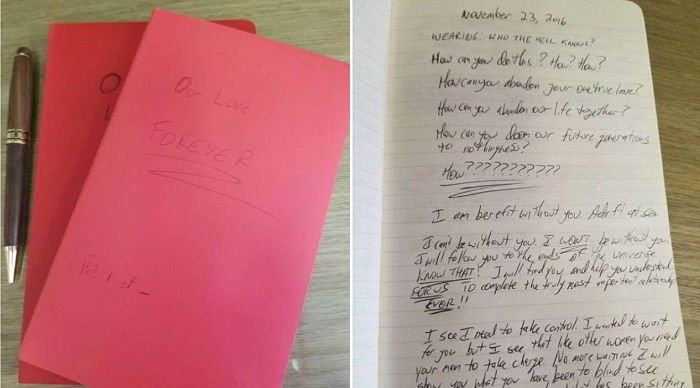 Our Love
FOREVER
November 23, 2016.
WEARING: WHO THE HELL KNOWS?
How can you do this? How? How?
How can you abandon your one true love?
How can you abandon our life together?
How can you doom our future generations
to nothingness?
How???????????
I am bereft without you. Adrift at sea
I can't be without you. I WON'T be without you.
I will follow you to the ends of the universe
KNOW THAT! I will find you and help you understand
FOR US to complete the truly most important relationship
EVER!!
I see I need to take control. I wanted to wait
for you but I see that like other women you need
your man to take charge. No more waiting I will
show you what you have been to blind to see
it has been